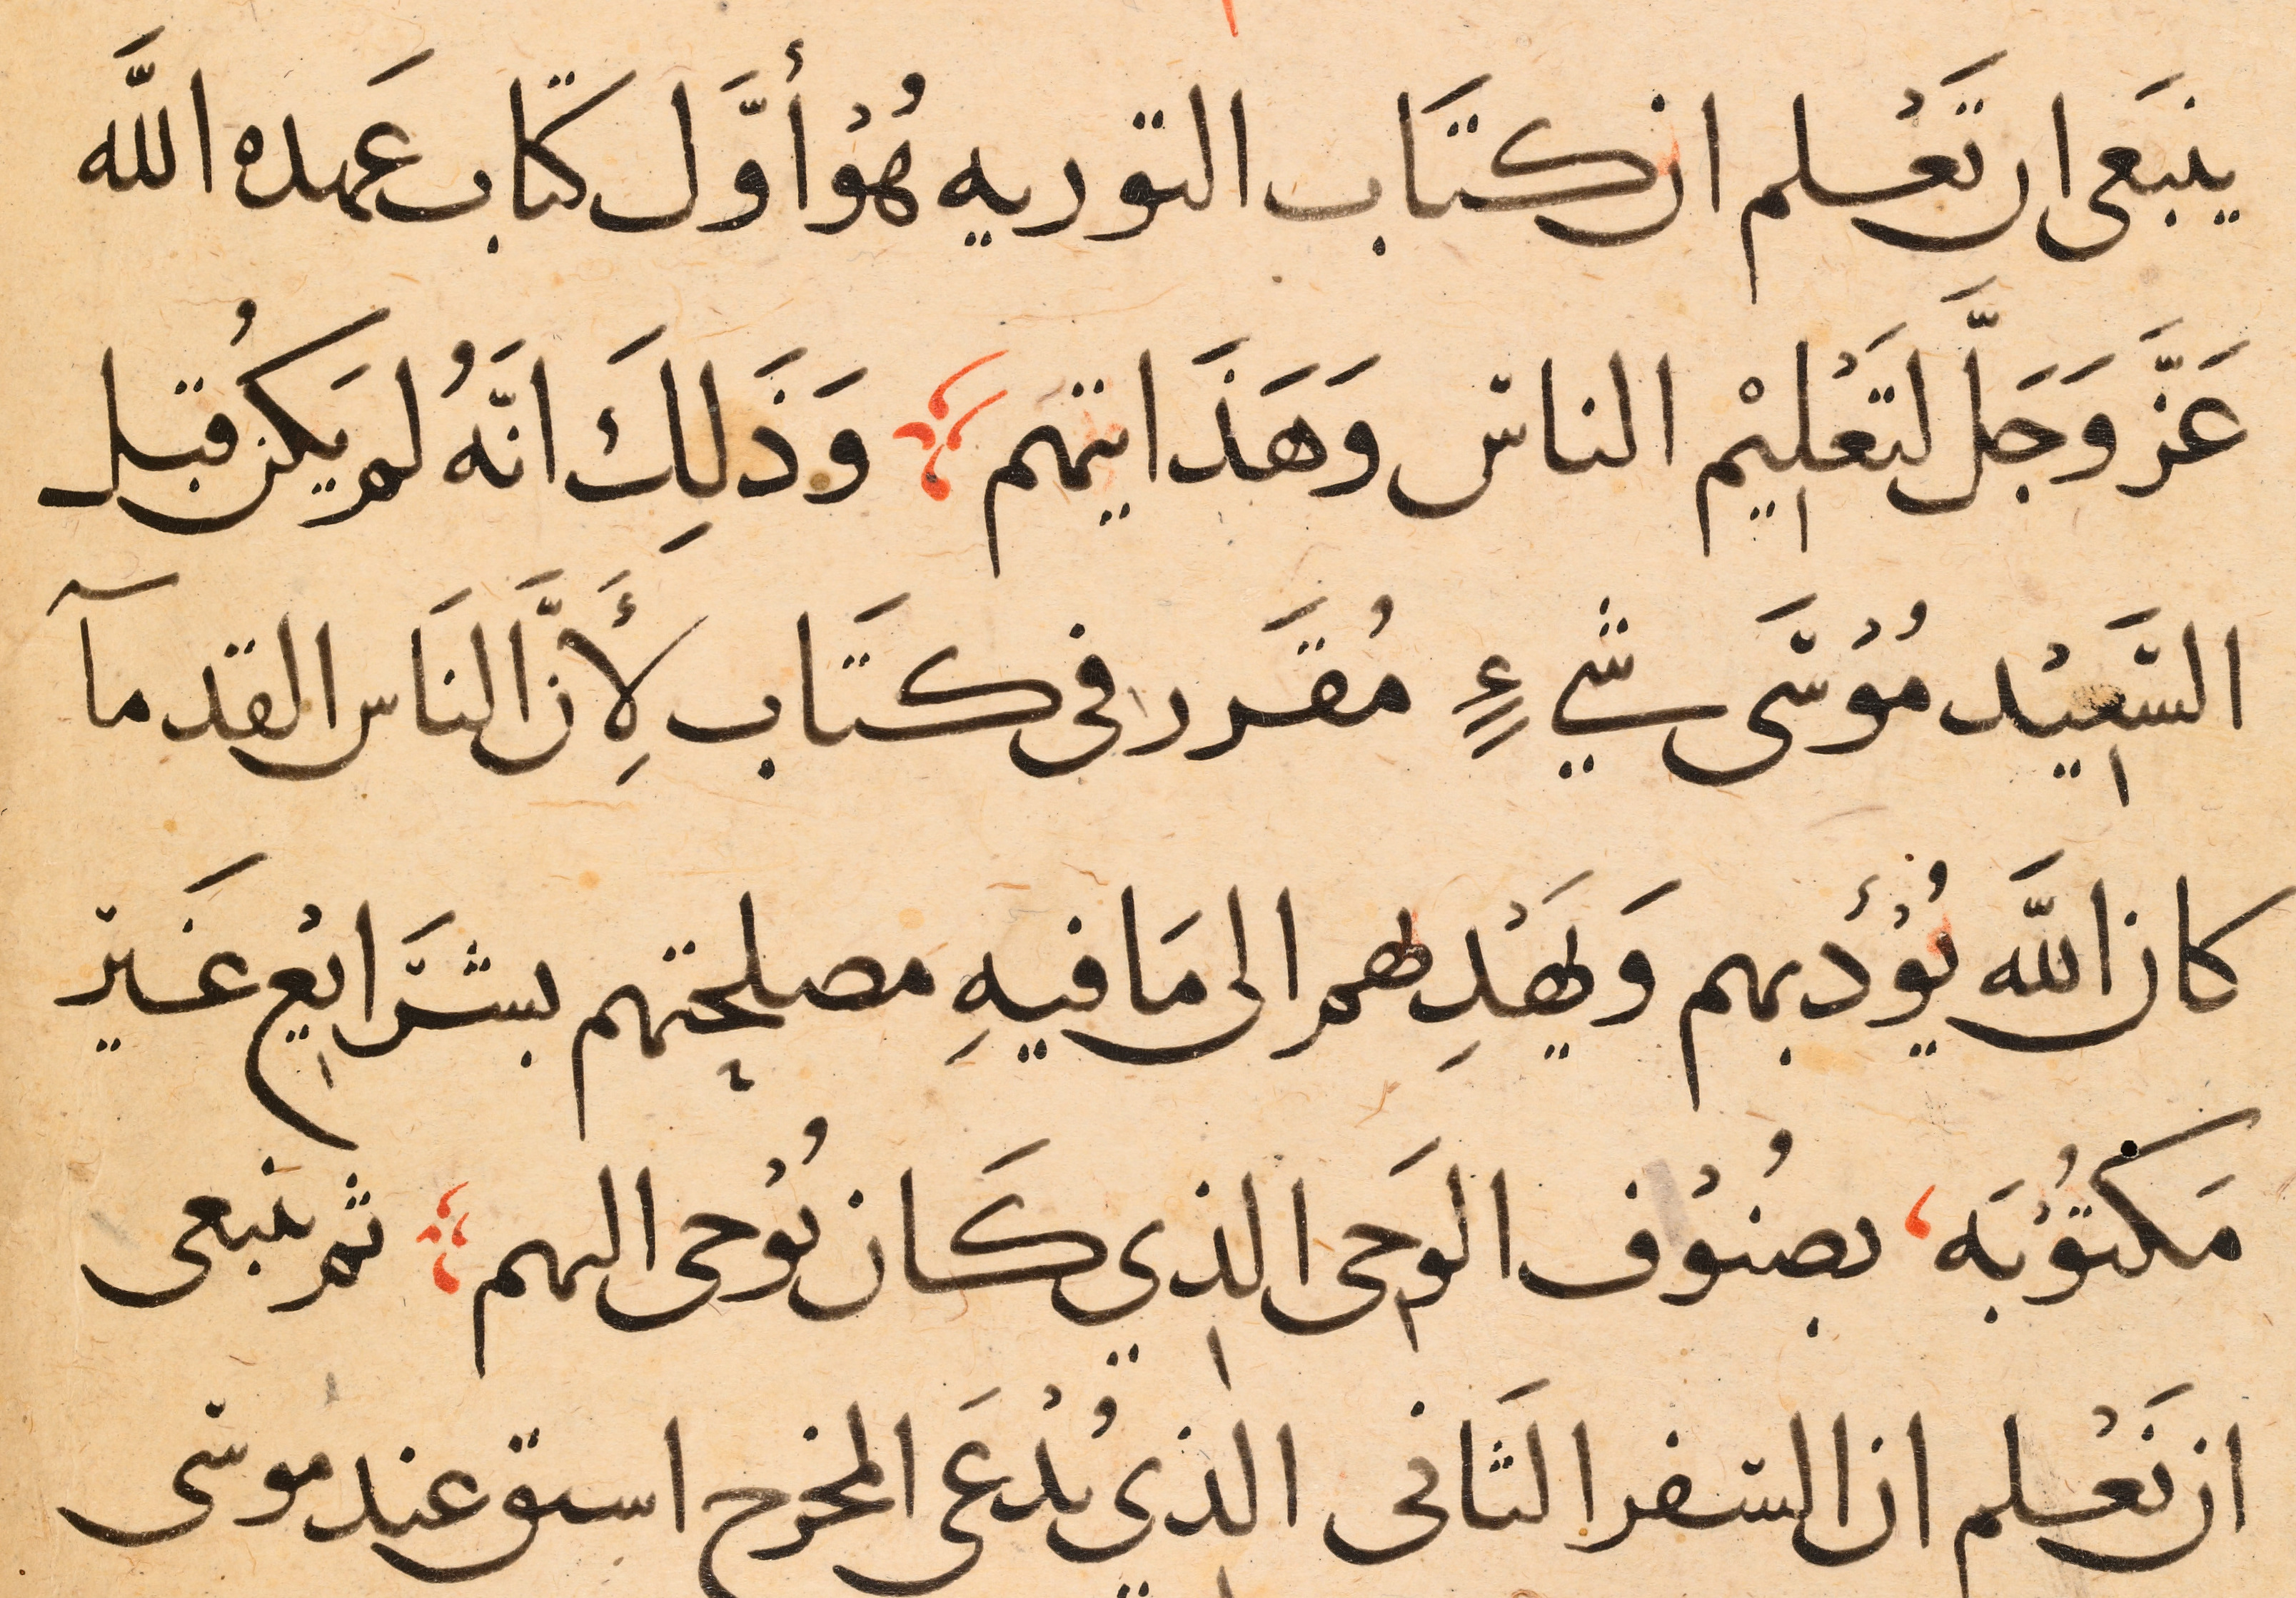 ينبَغى ان تَعْلم ان كتَاب التوريه هُوْ أوَّل كتاب عَهده اللَّه
عَزَّ وَجَلَّ لتَعْلِيْم الناس وَهَذَايتهم وَذَلِكَ انَّهُ لم يَكنُ قبل
السَّعِيْد مُوْسَى شيءٍ مُقَرر فى كتَاب لِأَنَّ النَاس القدمآ
كان اللَّه يُوْدبهم وَيَهْدِيهم الى مَا فيهِ مصلحتهم بشَرَايِع غَير
مَكتُوْبَه بصنُوْف الوَحى الذِي كَان نُوْحى اليهم ثم ينبعى
ان نَعْلم ان السفر الثَانى الذِي يُدْعَى المخرج استوق عند موسى